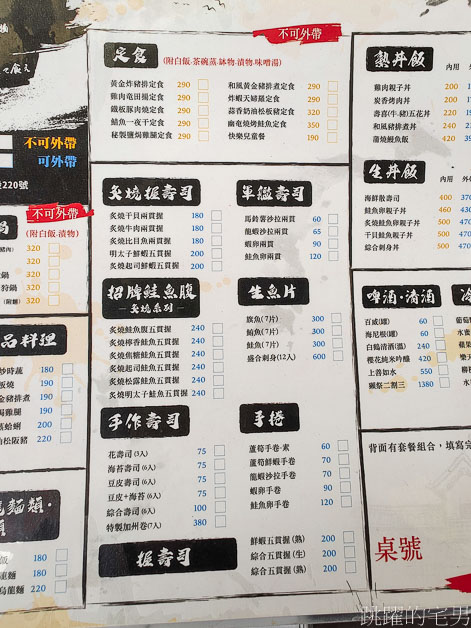 定食
(附白飯.茶碗蒸.缽物.漬物.味噌湯)
不可外帶
黃金炸豬排定食 290
雞肉竜田揚定食 290
鐵板豚肉燒定食 290
鯖魚一夜干定食 290
秘製鹽焗雞腿定食 290
和風黃金豬排煮定食 290
炸蝦天婦羅定食 290
蒜香奶油松板豬定食 320
幽庵燒烤鮭魚定食 350
快樂兒童餐 190
炙燒握壽司
炙燒干貝兩貫握 180
炙燒牛肉兩貫握 180
炙燒比目魚兩貫握 180
明太子鮮蝦五貫握 200
炙燒起司鮮蝦五貫握 200
軍艦壽司
馬鈴薯沙拉兩貫 60
龍蝦沙拉兩貫 65
蝦卵兩貫 90
鮭魚卵兩貫 120
招牌鮭魚腹
炙燒系列
炙燒鮭魚腹五貫握 240
炙燒檸香鮭魚五貫握 240
炙燒焦糖鮭魚五貫握 240
炙燒起司鮭魚五貫握 240
炙燒松露鮭魚五貫握 240
炙燒明太子鮭魚五貫握 240
生魚片
旗魚(7片) 300
鮪魚(7片) 300
鮭魚(7片) 300
盛合刺身(12入) 600
手作壽司
花壽司(3入) 75
海苔壽司(6入) 75
豆皮壽司(6入) 75
豆皮+海苔(6入) 75
綜合壽司(6入) 100
特製加州卷(7入) 380
手捲
蘆筍手卷·素 60
蘆筍鮮蝦手卷 70
龍蝦沙拉手卷 70
蝦卵手卷 90
鮭魚卵手卷 120
握壽司
鮮蝦五貫握(熟) 200
綜合五貫握(生) 200
綜合五貫握(熟) 200
熱丼飯
內用
雞肉親子丼 220
炭香烤肉丼 220
壽喜(牛.豬)五花丼 220
和風豬排煮丼 220
蒲燒鰻魚飯
生丼飯
內用
海鮮散壽司 400
鮭魚卵親子丼 460
炙燒鮭魚卵丼 500
干貝鮭魚卵丼 500
綜合刺身丼 500
啤酒·清酒
百威(罐) 60
海尼根(罐) 60
白鶴清酒(溫) 240
櫻花純米吟釀 420
上善如水 550
獺祭二割三 1380
背面有套餐組合，填寫完
桌號
不可外帶
可外帶
220號
不可外帶
(附白飯.漬物)
320
320
320
320
320
品料理
炒時蔬 190
板燒 190
豬排煮 190
腿 190
蛤蜊 200
松阪豬 220
麵類·
飯 180
麵 180
烏龍麵 220
跳躍的宅男